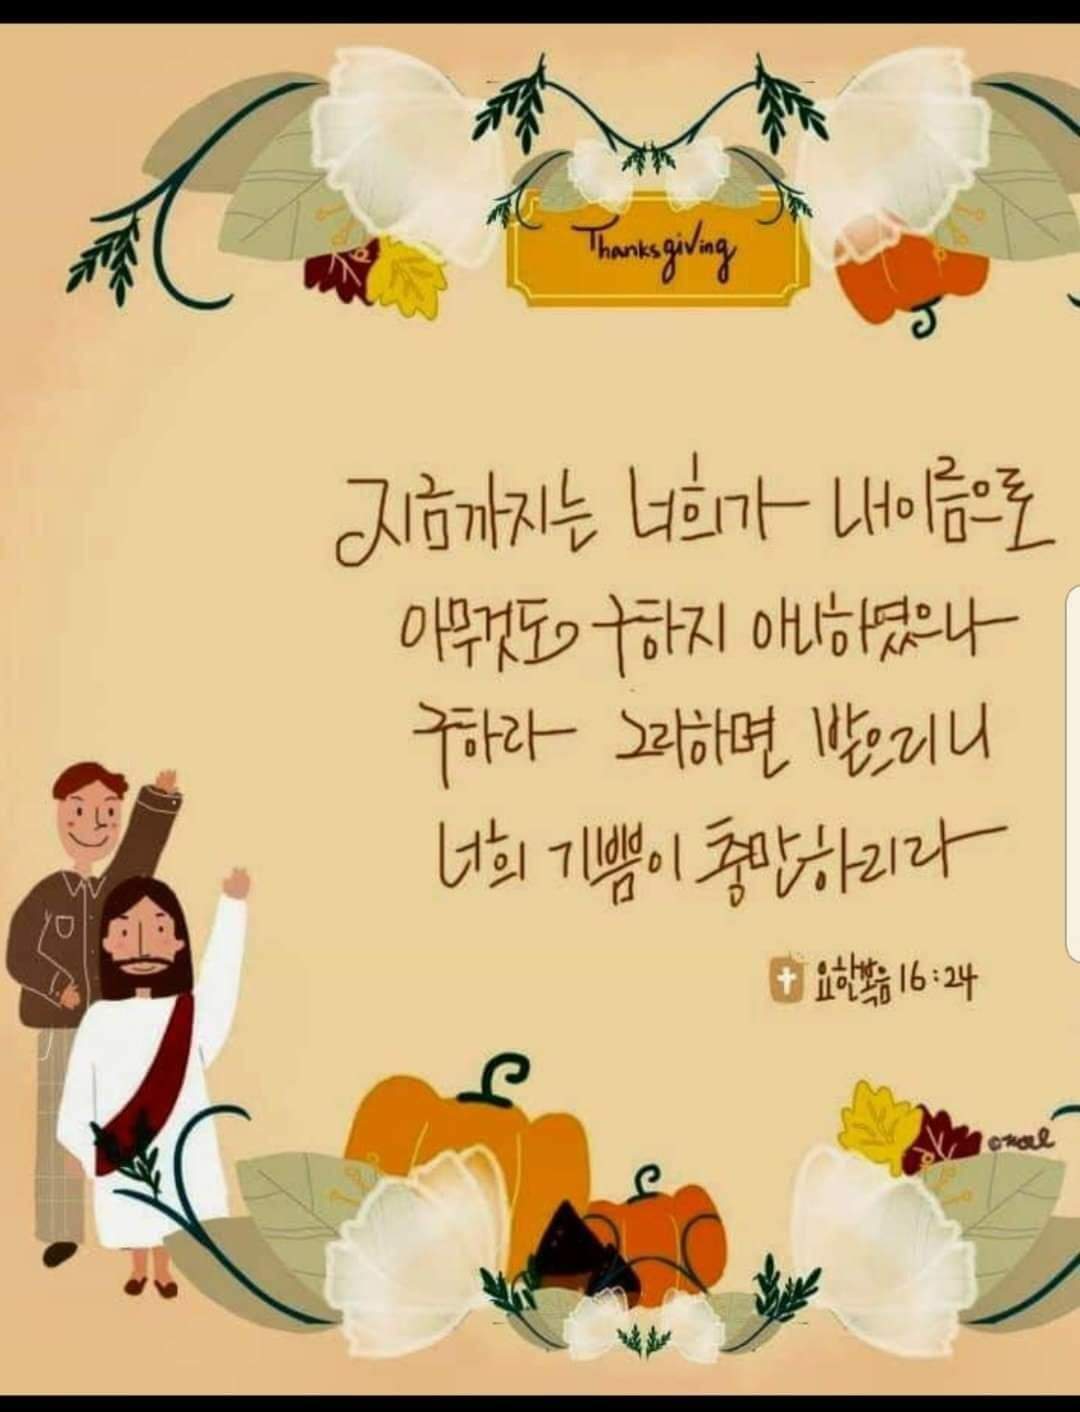 Thanksgiving
지금까지는 너희가 내이름으로
아무것도 구하지 아니하였으나
구하라 그리하면 받으리니
너희 기쁨이 충만하리라
요한복음 16:24
©noel